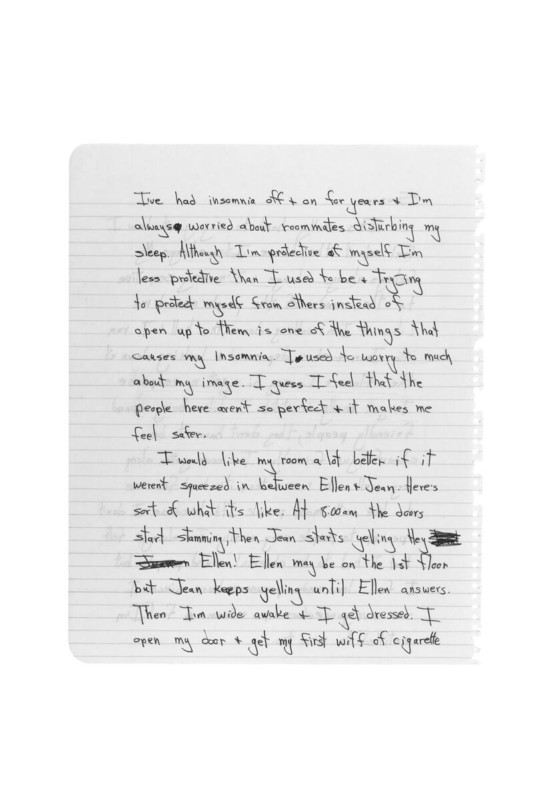 I've had insomnia off + on for years + I'm
always worried about roommates disturbing my
sleep. Although I'm protective of myself I'm
less protective than I used to be + trying
to protect myself from others instead of
open up to them is one of the things that
causes my insomnia. I used to worry to much
about my image. I guess I feel that the
people here arent so perfect + it makes me
feel safer.
I would like my room a lot better if it
werent squeezed in between Ellen + Jean. Here's
sort of what it's like. At 8:00am the doors
start slamming, then Jean starts yelling Hey
Ellen! Ellen may be on the 1st floor
but Jean keeps yelling until Ellen answers.
Then I'm wide awake + I get dressed. I
open my door + get my first wiff of cigarette